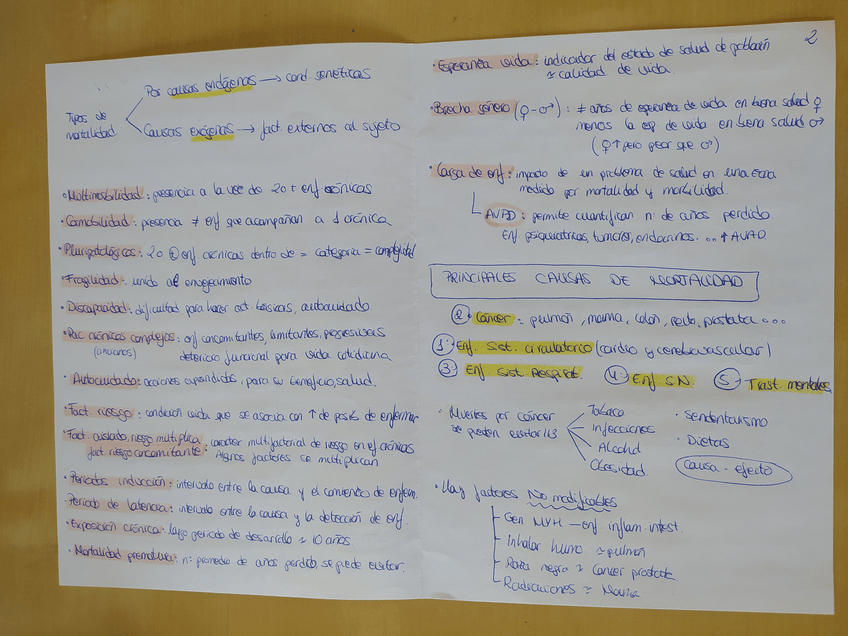 Por causas endógenas → cond. genéticas
Tipos de mortalidad
Causas exógenas → fact. externos al sujeto
• Multimorbilidad: presencia a la vez de 2 o + enf crónicas
• Comorbilidad: presencia ≠ enf que acompañan a 1 crónica
• Pluripatológicos: 2 o ⊕ enf crónicas dentro de = categoria = complejidad
• Fragilidad: unido al envejecimiento
• Discapacidad: dificultad para hacer act básicas, autocuidado.
• Pac crónicos complejos: enf concomitantes, limitantes, progresivas
(ancianos) deterioro funcional para vida cotidiana
• Autocuidado: acciones aprendidas, para su beneficio, salud.
• Fact. riesgo: condición vida que se asocia con ↑ de posib de enfermar
• Fact aislado, riesgo multiplica,
fact. riesgo concomitante: caracter multifactorial de riesgo en enf. crónicas
Algunos factores se multiplican
• Periodos inducción: intervalo entre la causa y el comienzo de enferm.
• Periodo de latencia: intervalo entre la causa y la detección de enf.
• Exposición crónica: largo periodo de desarrollo ≈ 10 años
• Mortalidad prematura: nº promedio de años perdido, se puede evitar.
2
• Esperanza vida: indicador del estado de salud de población
≈ calidad de vida.
• Brecha género (♀-♂): ≠ años de esperanza de vida en buena salud ♀
menos la esp de vida en buena salud ♂
(♀ ↑ pero peor que ♂)
• Carga de enf: impacto de un problema de salud en una
medido por mortalidad y morbilidad.
AVAD: permite cuantificar nº de años perdido
Enf psiquiatricas, tumores, endocrinos... ↑ AVAD
PRINCIPALES CAUSAS DE MORTALIDAD
② Cáncer: pulmón, mama, colon, recto, prostata...
①: Enf. Sist. circulatorio (cardio y cerebrovascular)
③: Enf Sist Respirat. ④: Enf SN ⑤: Trast. mentales
• Muertes por cáncer
se pueden evitar 1/3
Tabaco
Infecciones
Alcohol
Obesidad
• Sendentarismo
• Dietas
Causa - efecto
• Hay factores No modificables
Gen MYH — enf inflam. intest.
Inhalar humo ≈ pulmón
Raza negra ≈ Cancer prostata
Radiaciones ≈ Mama